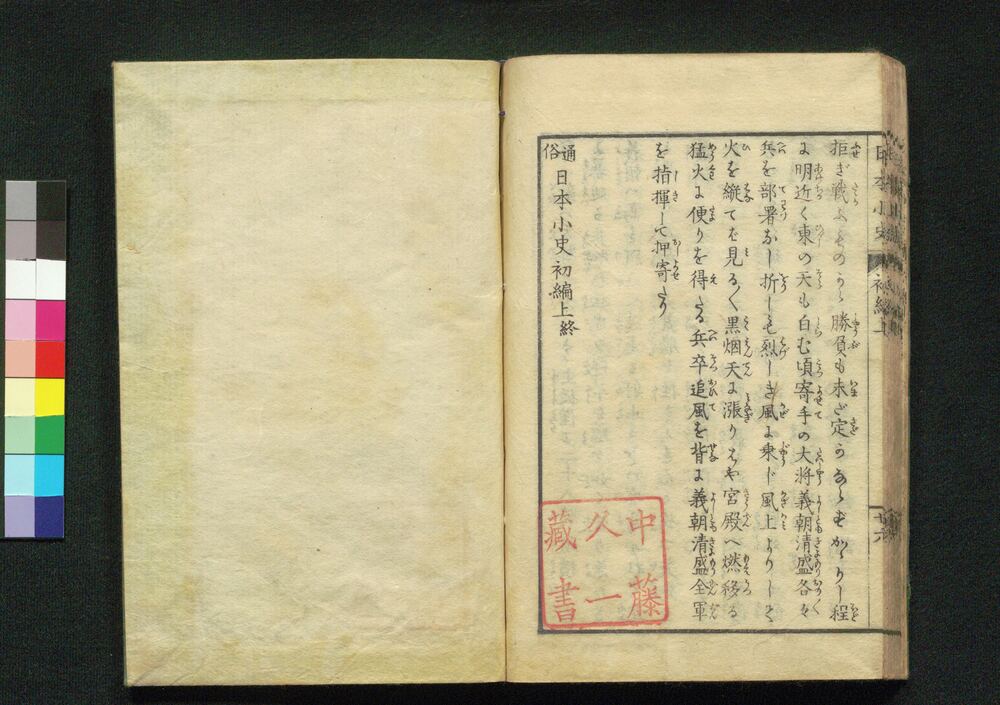 日本小史 初編上 廿六
拒ぎ戦ふものから勝負も未だ定かならずかゝりし程
に明近く東の天も白む頃寄手の大将義朝清盛各々
兵を部署なし折しも烈しき風に乗じ風上よりして
火を縦て見る〱黒烟天に漲りはや宮殿へ燃移る
猛火に便りを得たる兵卒追風を背に義朝清盛全軍
を指揮して押寄たり
通俗日本小史初編上終
中藤
久一
蔵書